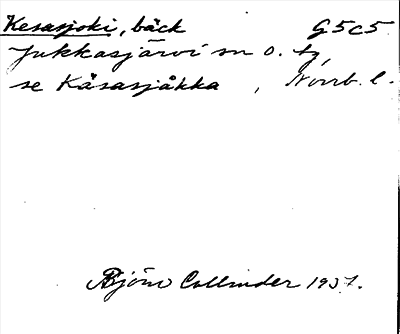 Kesasjoki, bäck G5c5
Jukkasjärvi sn o. tg,
se Kåsasjåkka , Norrb. l.
Björn Collinder 1937.